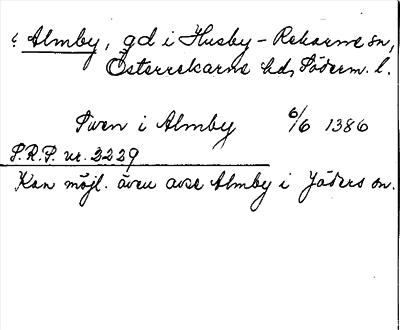 Almby, gd i Husby-Rekarne sn,
Österrekarne hd, Söderm. l.
Swen i Almby 6/6 1386
S.R.P. nr. 2229
Kan möjl. även avse Almby i Jäders sn.